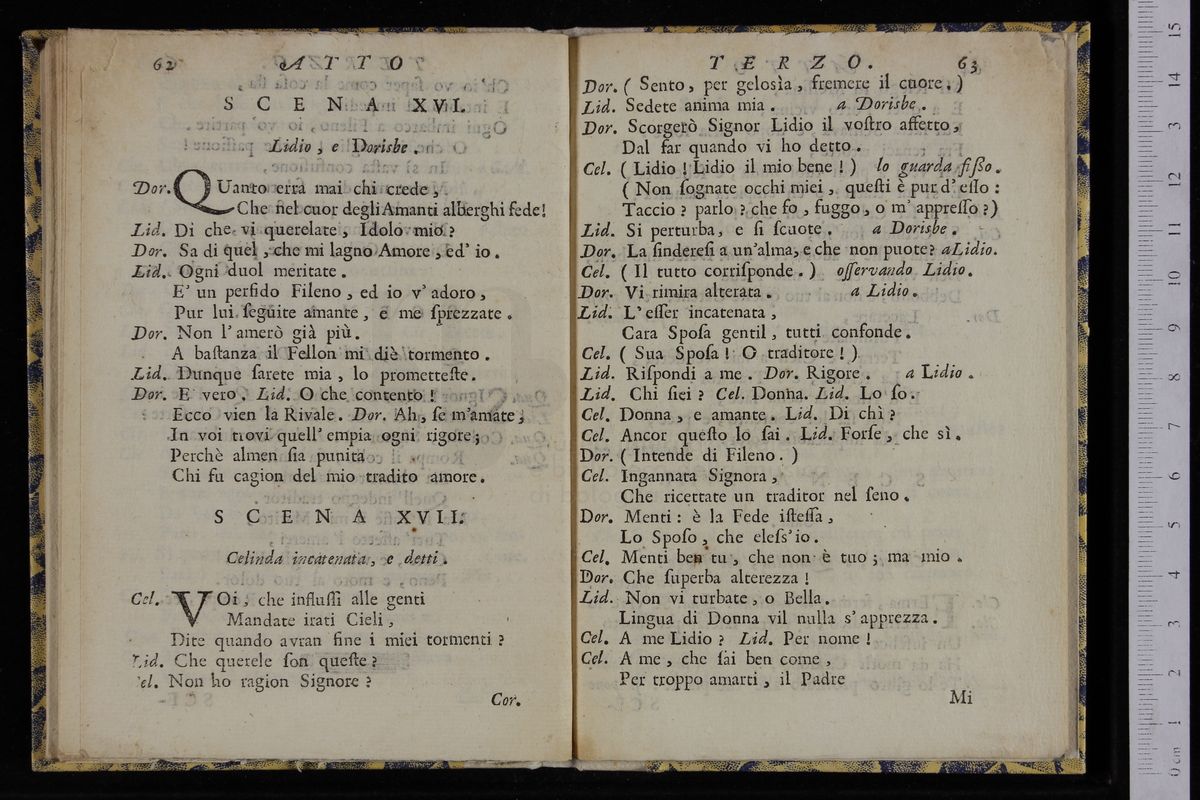 62 ATTO
SCENA XVI.
Lidio, e Dorisbe.
Dor. QUanto erra mai chi crede,
Che nel cuor degli Amanti alberghi fede!
Lid. Di che vi querelate, Idolo mio?
Dor. Sa di quel, che mi lagno Amore, ed' io.
Lid. Ogni duol meritate.
E' un perfido Fileno, ed io v' adoro,
Pur lui seguite amante, e me sprezzate.
Dor. Non l' amerò già più.
A bastanza il Fellon mi diè tormento.
Lid. Dunque sarete mia, lo prometteste.
Dor. E vero. Lid. O che contento!
Ecco vien la Rivale. Dor. Ah, se m'amate,
In voi trovi quell' empia ogni rigore;
Perchè almen sia punita
Chi fu cagion del mio tradito amore.
SCENA XVII.
Celinda incatenata, e detti.
Cel. VOi, che influssi alle genti
Mandate irati Cieli,
Dite quando avran fine i miei tormenti?
Lid. Che querele son queste?
Cel. Non ho ragion Signore?
Cor.
TERZO. 63
Dor. ( Sento, per gelosìa, fremere il cuore. )
Lid. Sedete anima mia. a Dorisbe.
Dor. Scorgerò Signor Lidio il vostro affetto,
Dal far quando vi ho detto.
Cel. ( Lidio! Lidio il mio bene! ) lo guarda fisso.
( Non sognate occhi miei, questi è pur d' esso:
Taccio? parlo? che fo, fuggo, o m' appresso?)
Lid. Si perturba, e si scuote. a Dorisbe.
Dor. La sinderesi a un'alma, e che non puote? a Lidio.
Cel. ( Il tutto corrisponde. ) osservando Lidio.
Dor. Vi rimira alterata. a Lidio.
Lid. L' esser incatenata,
Cara Sposa gentil, tutti confonde.
Cel. ( Sua Sposa! O traditore! )
Lid. Rispondi a me. Dor. Rigore. a Lidio.
Lid. Chi siei? Cel. Donna. Lid. Lo so.
Cel. Donna, e amante. Lid. Di chì?
Cel. Ancor questo lo sai. Lid. Forse, che sì.
Dor. ( Intende di Fileno. )
Cel. Ingannata Signora,
Che ricettate un traditor nel seno.
Dor. Menti: è la Fede istessa,
Lo Sposo, che eless'io.
Cel. Menti ben tu, che non è tuo; ma mio.
Dor. Che superba alterezza!
Lid. Non vi turbate, o Bella.
Lingua di Donna vil nulla s' apprezza.
Cel. A me Lidio? Lid. Per nome!
Cel. A me, che sai ben come,
Per troppo amarti, il Padre
Mi